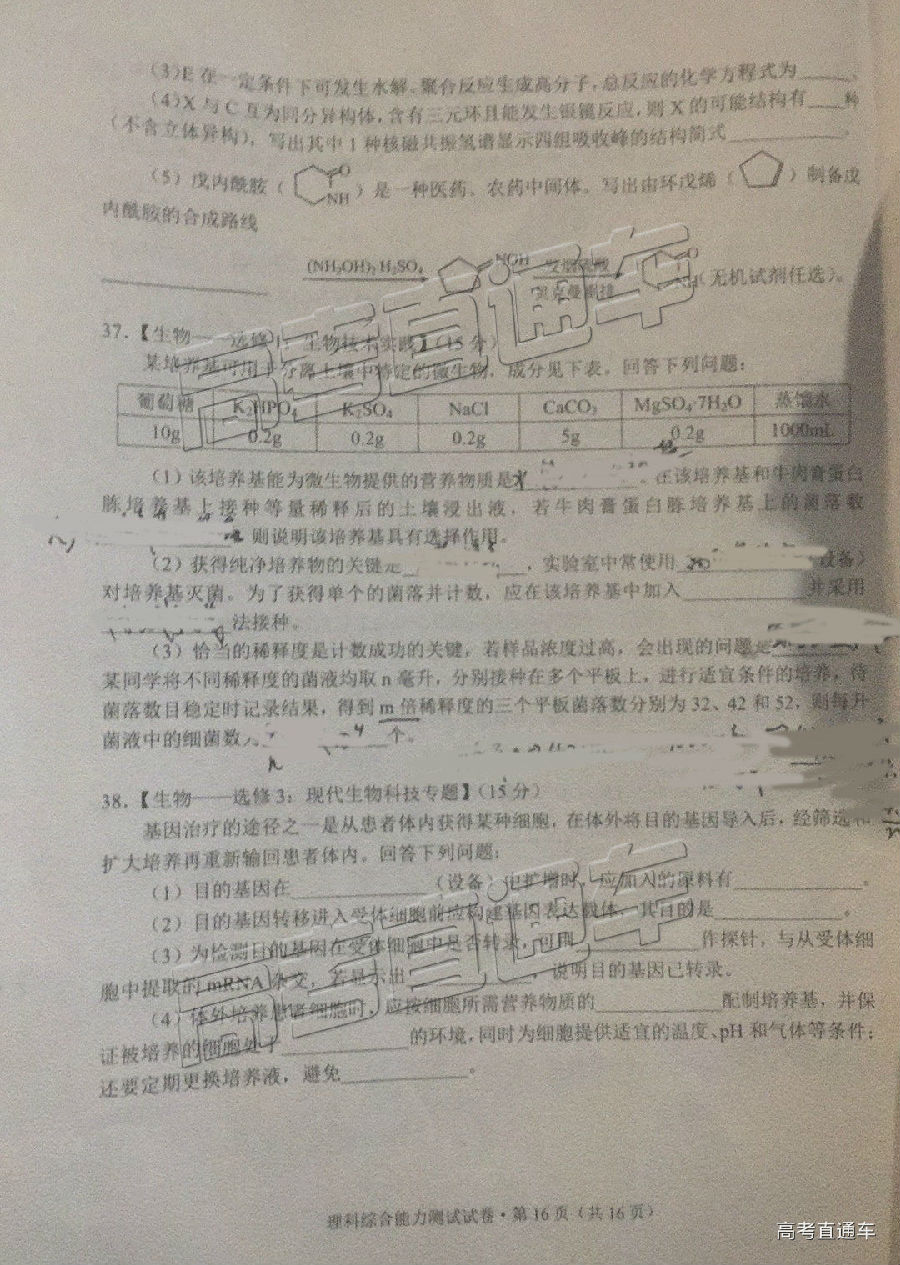 (3)E 在一定条件下可发生水解、聚合反应生成高分子,总反应的化学方程式为______。
(4)X 与 C 互为同分异构体,含有三元环且能发生银镜反应,则 X 的可能结构有____种
(不含立体异构),写出其中 1 种核磁共振氢谱显示四组吸收峰的结构简式____________。
(5)戊内酰胺( O NH )是一种医药、农药中间体。写出由环戊烯( )制备戊
内酰胺的合成路线
____________ (NH₃OH)₂H₂SO₄ NOH 发烟硫酸 贝克曼重排 NH(无机试剂任选)。
37.【生物——选修 1:生物技术实践】(15 分)
某培养基可用于分离土壤中特定的微生物,成分见下表。回答下列问题:
葡萄糖 K₂HPO₄ K₂SO₄ NaCl CaCO₃ MgSO₄·7H₂O 蒸馏水
10g 0.2g 0.2g 0.2g 5g 0.2g 1000mL
(1)该培养基能为微生物提供的营养物质是____________。在该培养基和牛肉膏蛋白
胨培养基上接种等量稀释后的土壤浸出液,若牛肉膏蛋白胨培养基上的菌落数
____________,则说明该培养基具有选择作用。
(2)获得纯净培养物的关键是____________,实验室中常使用____________设备)
对培养基灭菌。为了获得单个的菌落并计数,应在该培养基中加入____________并采用
____________法接种。
(3)恰当的稀释度是计数成功的关键,若样品浓度过高,会出现的问题是____________
某同学将不同稀释度的菌液均取 n 毫升,分别接种在多个平板上,进行适宜条件的培养,待
菌落数目稳定时记录结果,得到 m 倍稀释度的三个平板菌落数分别为 32、42 和 52,则每升
菌液中的细菌数为____________个。
38.【生物——选修 3:现代生物科技专题】(15 分)
基因治疗的途径之一是从患者体内获得某种细胞,在体外将目的基因导入后,经筛选和
扩大培养再重新输回患者体内。回答下列问题:
(1)目的基因在____________(设备)中扩增时,应加入的原料有____________。
(2)目的基因转移进入受体细胞前应构建基因表达载体,其目的是____________。
(3)为检测目的基因在受体细胞中是否转录,可用____________作探针,与从受体细
胞中提取的 mRNA 杂交,若显示出____________,说明目的基因已转录。
(4)体外培养患者细胞时,应按细胞所需营养物质的____________配制培养基,并保
证被培养的细胞处于____________的环境,同时为细胞提供适宜的温度、pH 和气体等条件;
还要定期更换培养液,避免____________。
理科综合能力测试试卷·第16页(共16页)
高考直通车
高考直通车
高考直通车